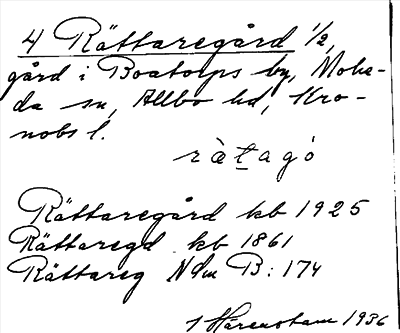 4 Rättaregård 1/2,
gård i Boatorps by, Mohe-
da sn, Allbo hd, Kro-
nobs l.
ràṯagó
Rättaregård kb 1925
Rättaregd kb 1861
Rättareg Ndm B: 174
1936